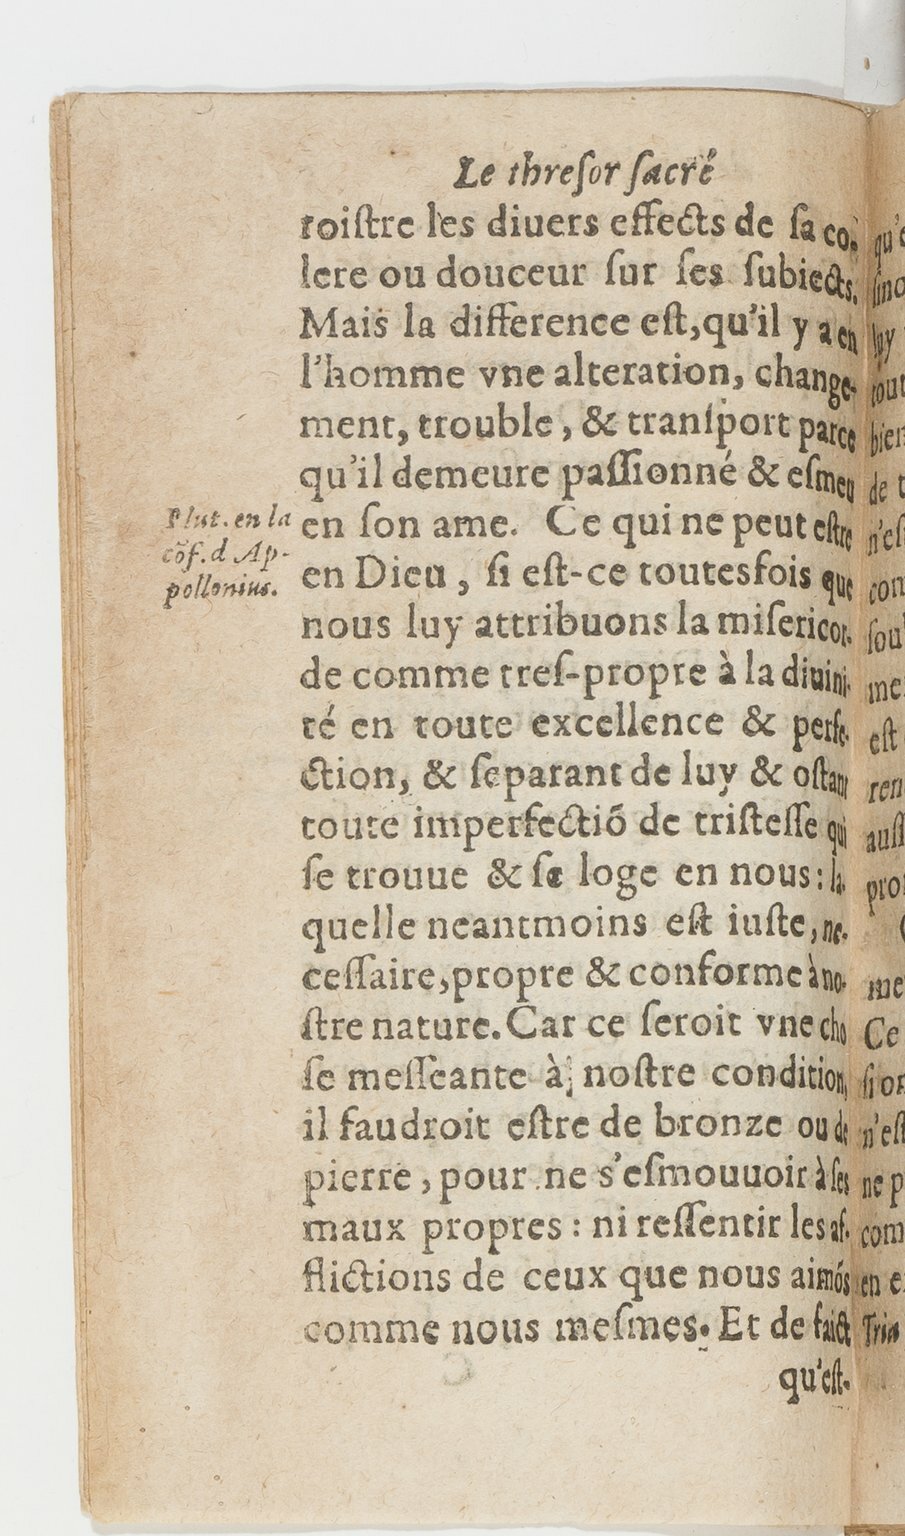 Le threſor ſacré
roiſtre les diuers effects de ſa co-
lere ou douceur ſur ſes ſubiects.
Mais la difference eſt, qu'il y a en
l'homme vne alteration, change-
ment, trouble, & tranſport parce
qu'il demeure paſſionné & eſmeu
en ſon ame. Ce qui ne peut eſtre
en Dieu, ſi eſt-ce toutesfois que
nous luy attribuons la miſericor-
de comme treſ-propre à la diuini-
té en toute excellence & perfe-
ction, & ſeparant de luy & oſtant
toute imperfectiõ de triſteſſe qui
ſe trouue & ſe loge en nous: la-
quelle neantmoins eſt iuſte, ne-
ceſſaire, propre & conforme à no-
ſtre nature. Car ce ſeroit vne cho
ſe meſſeante à noſtre condition,
il faudroit eſtre de bronze ou de
pierre, pour ne s'eſmouuoir à ſes
maux propres: ni reſſentir les af-
flictions de ceux que nous aimõs
comme nous meſmes. Et de faict
qu'eſt-
Plut. en la
cõſ. d Ap-
pollonius.